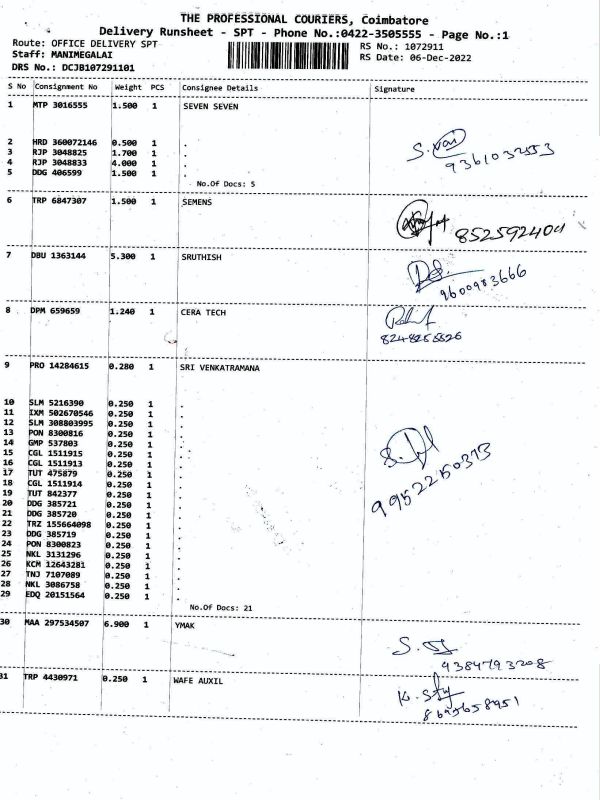 THE PROFESSIONAL COURIERS, Coimbatore
Delivery Runsheet - SPT - Phone No.:0422-3505555 - Page No.:1
Route: OFFICE DELIVERY SPT RS No.: 1072911
Staff: MANIMEGALAI RS Date: 06-Dec-2022
DRS No.: DCJB107291101
S No Consignment No Weight PCS Consignee Details Signature
1 MTP 3016555 1.500 1 SEVEN SEVEN
2 HRD 360072146 0.500 1 .
3 RJP 3048825 1.700 1 .
4 RJP 3048833 4.000 1 .
5 DDG 406599 1.500 1 .
9361032553
No.Of Docs: 5
6 TRP 6847307 1.500 1 SEMENS
852592404
7 DBU 1363144 5.300 1 SRUTHISH
9600983666
8 DPM 659659 1.240 1 CERA TECH
8248258826
9 PRO 14284615 0.280 1 SRI VENKATRAMANA
10 SLM 5216390 0.250 1 .
11 IXM 502670546 0.250 1 .
12 SLM 308803995 0.250 1 .
13 PON 8300816 0.250 1 .
14 GMP 537803 0.250 1 .
15 CGL 1511915 0.250 1 .
16 CGL 1511913 0.250 1 .
17 TUT 475879 0.250 1 .
18 CGL 1511914 0.250 1 .
19 TUT 842377 0.250 1 .
20 DDG 385721 0.250 1 .
21 DDG 385720 0.250 1 .
22 TRZ 155664098 0.250 1 .
23 DDG 385719 0.250 1 .
24 PON 8300823 0.250 1 .
25 NKL 3131296 0.250 1 .
26 KCM 12643281 0.250 1 .
27 TNJ 7107089 0.250 1 .
28 NKL 3086758 0.250 1 .
29 EDQ 20151564 0.250 1 .
9952250373
No.Of Docs: 21
30 MAA 297534507 6.900 1 YMAK
9384793208
31 TRP 4430971 0.250 1 WAFE AUXIL
8695658951